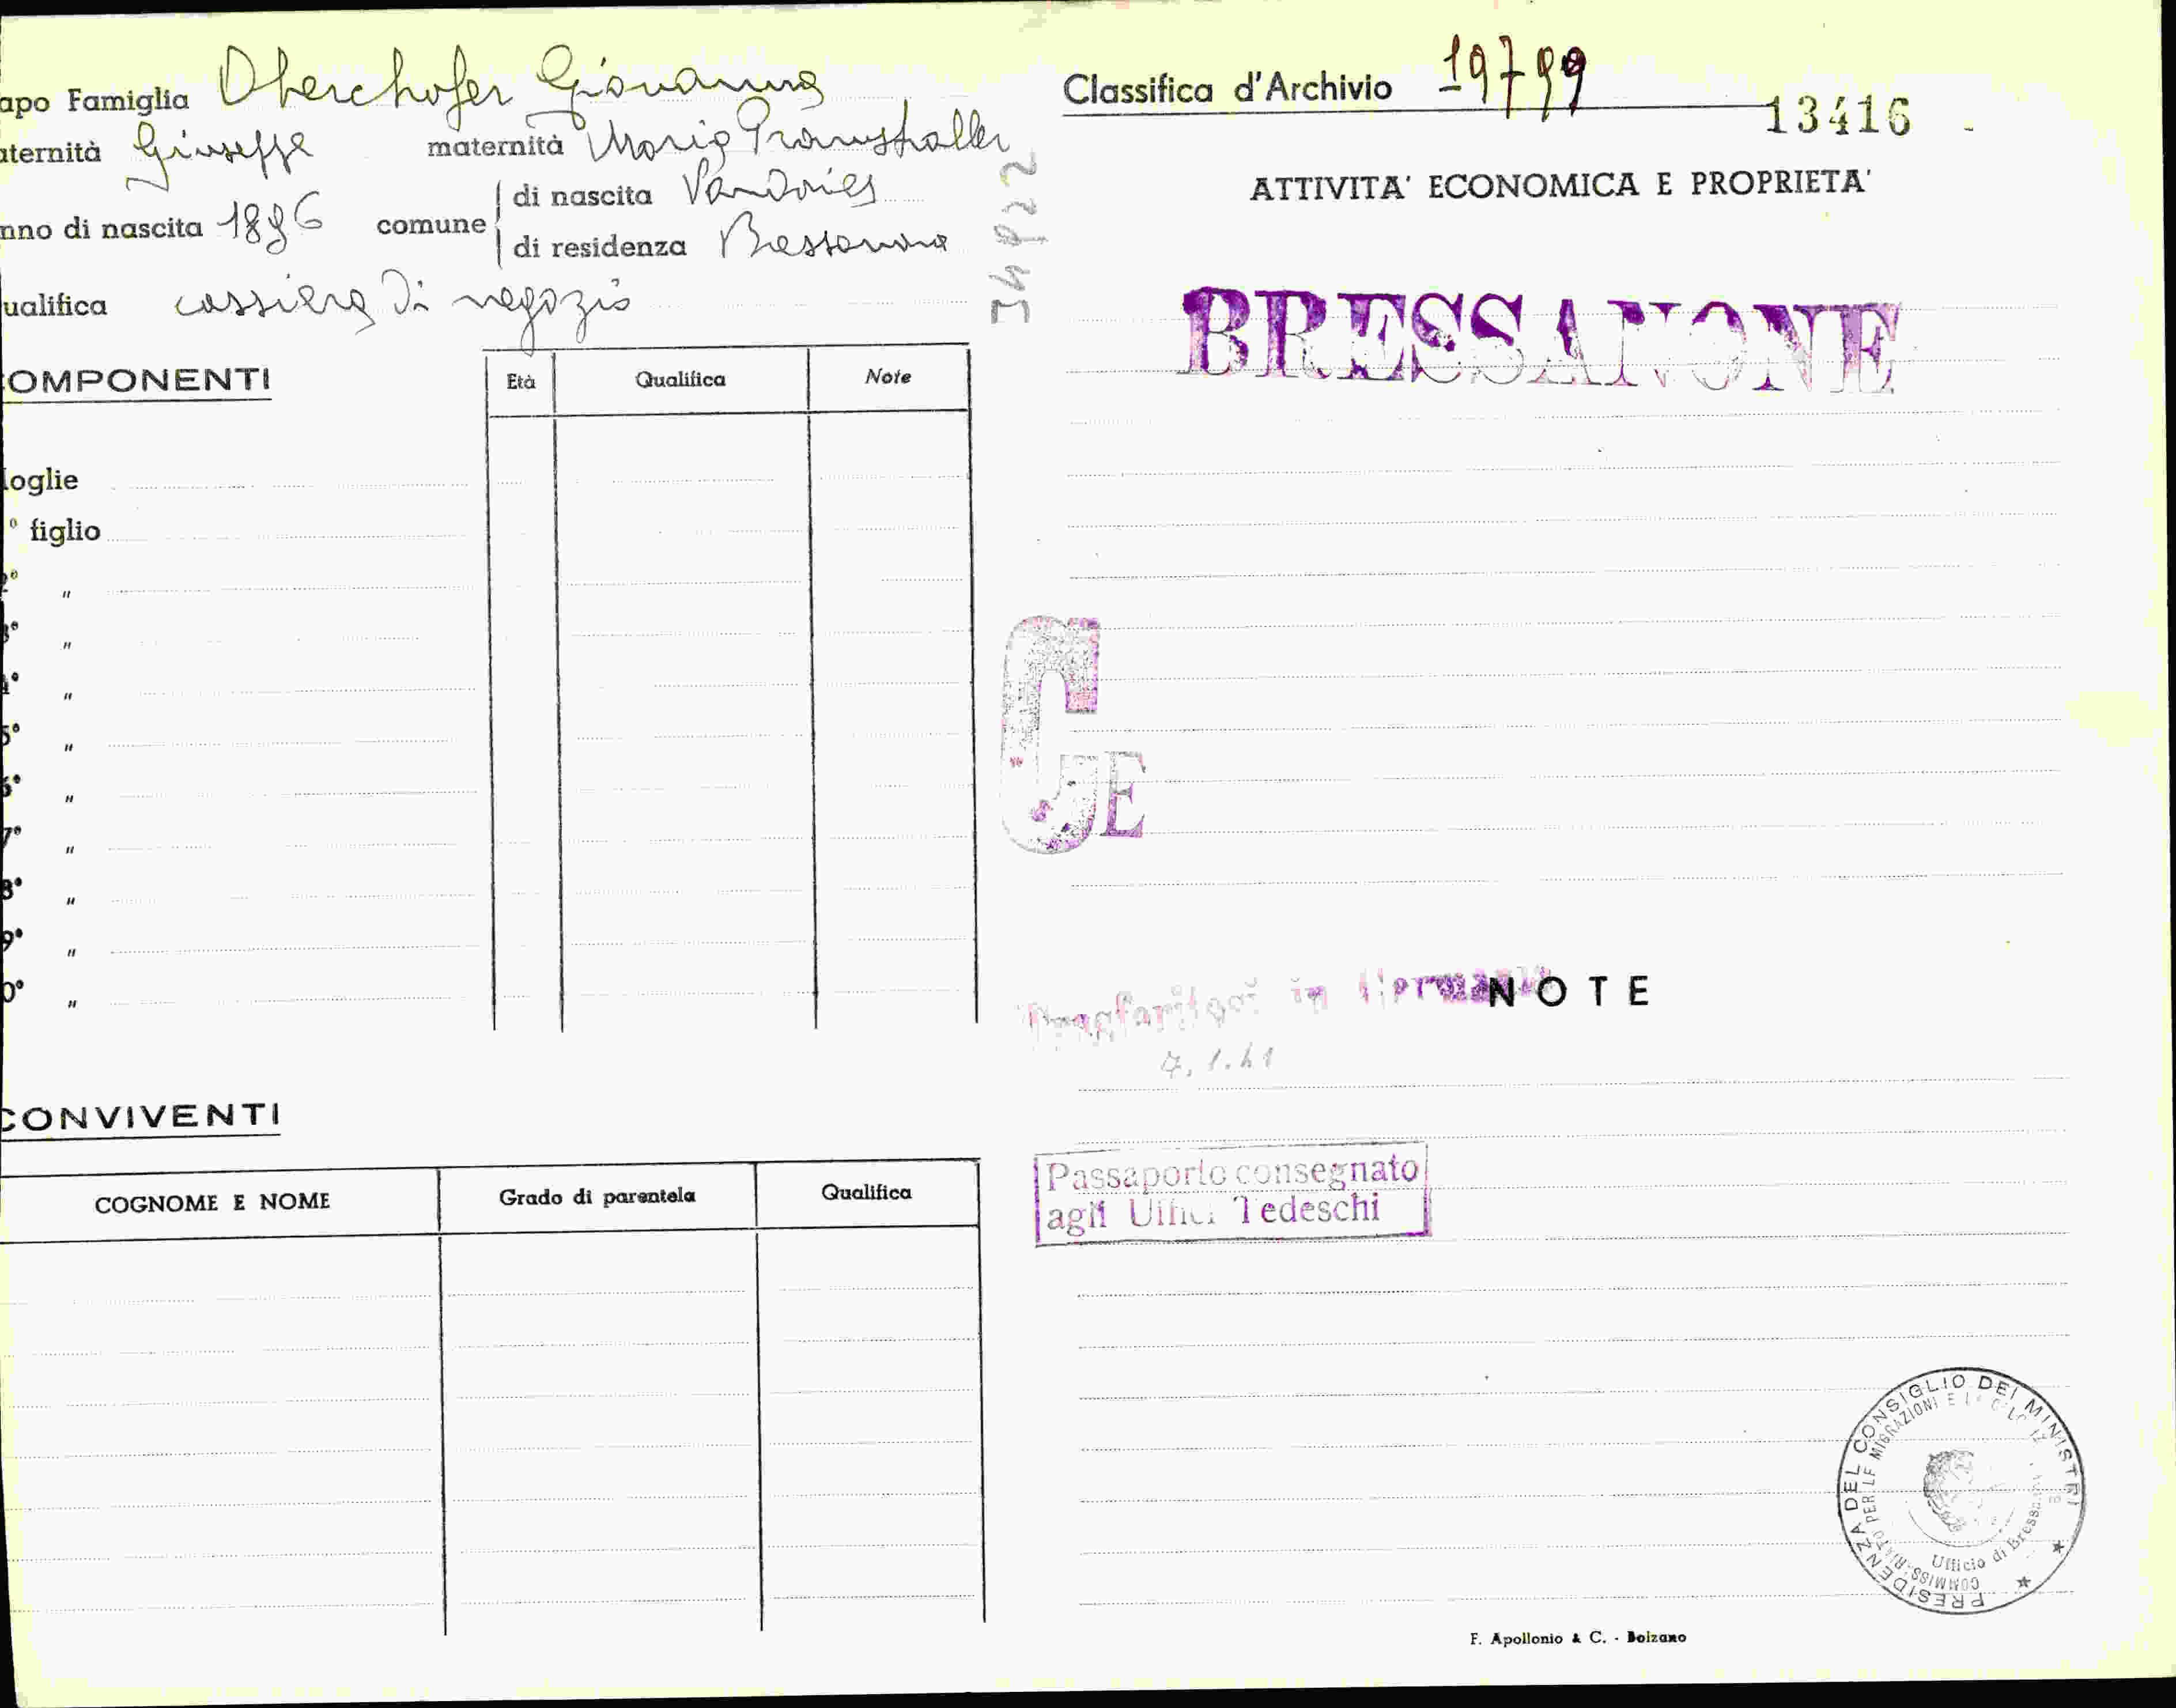 apo Famiglia Oberchofer Giovanna
aternità Giuseppe maternità Maria Pramstaller
nno di nascita 1896 comune di nascita Vandoies
di residenza Bressanone
ualifica cassiera di negozio
OMPONENTI
Età Qualifica Note
oglie
° figlio
2° "
3° "
4° "
5° "
6° "
7° "
8° "
9° "
0° "
CONVIVENTI
COGNOME E NOME Grado di parentela Qualifica
Classifica d'Archivio 19799
13416
34922
ATTIVITA' ECONOMICA E PROPRIETA'
BRESSANONE
G
E
Trasferitosi in Germania
NOTE
7.1.41
Passaporto consegnato
agli Uffici Tedeschi
PRESIDENZA DEL CONSIGLIO DEI MINISTRI
COMMISSARIATO PER LE MIGRAZIONI E LA
Ufficio di Bressanone
F. Apollonio & C. - Bolzano